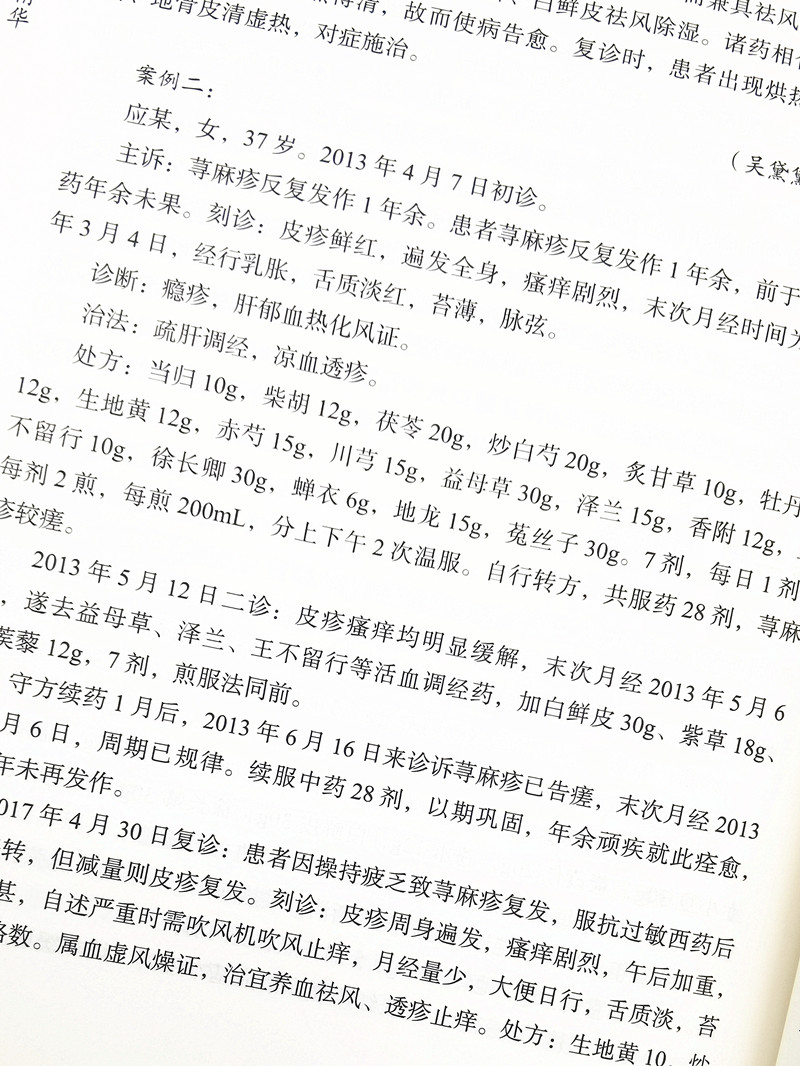 精华
白鲜皮祛风除湿。诸药相
地骨皮清虚热，对症施治。
故而使病告愈。复诊时，患者出现烘热
（吴黛黛
案例二：
应某，女，37岁。2013年4月7日初诊。
主诉：荨麻疹反复发作1年余。患者荨麻疹反复发作1年余，前于
药年余未果。刻诊：皮疹鲜红，遍发全身，瘙痒剧烈，末次月经时间为
年3月4日，经行乳胀，舌质淡红，苔薄，脉弦。
诊断：瘾疹，肝郁血热化风证。
治法：疏肝调经，凉血透疹。
处方：当归10g，柴胡12g，茯苓20g，炒白芍20g，炙甘草10g，牡丹
12g，生地黄12g，赤芍15g，川芎15g，益母草30g，泽兰15g，香附12g，
不留行10g，徐长卿30g，蝉衣6g，地龙15g，菟丝子30g。7剂，每日1剂
每剂2煎，每煎200mL，分上下午2次温服。自行转方，共服药28剂，荨麻
疹较瘥。
2013年5月12日二诊：皮疹瘙痒均明显缓解，末次月经2013年5月6
，遂去益母草、泽兰、王不留行等活血调经药，加白鲜皮30g、紫草18g、
蒺藜12g，7剂，煎服法同前。
守方续药1月后，2013年6月16日来诊诉荨麻疹已告瘥，末次月经2013
月6日，周期已规律。续服中药28剂，以期巩固，年余顽疾就此痊愈，
年未再发作。
2017年4月30日复诊：患者因操持疲乏致荨麻疹复发，服抗过敏西药后
转，但减量则皮疹复发。刻诊：皮疹周身遍发，瘙痒剧烈，午后加重，
甚，自述严重时需吹风机吹风止痒，月经量少，大便日行，舌质淡，苔
数。属血虚风燥证，治宜养血祛风、透疹止痒。处方：生地黄10